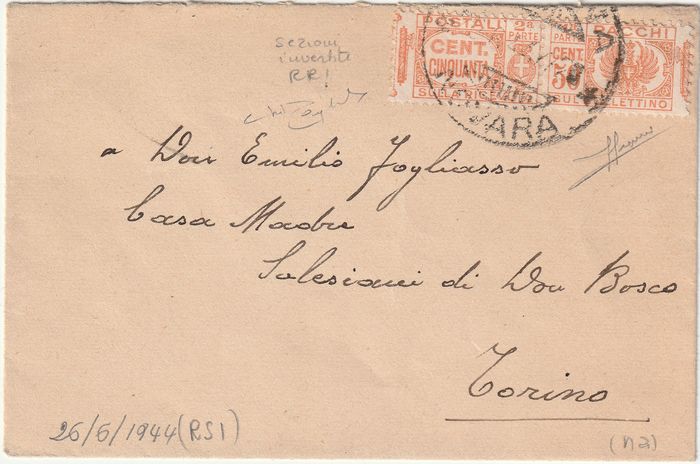 POSTALI 2ª PARTE
CENT. CINQUANTA
SULLA RICE
PARTE PACCHI
CENT. 50
SUL BOLLETTINO
sezioni
invertite
RR!
a Don Emilio Fogliasso
Casa Madre
Salesiani di Don Bosco
Torino
26/6/1944 (RSI)
(na)